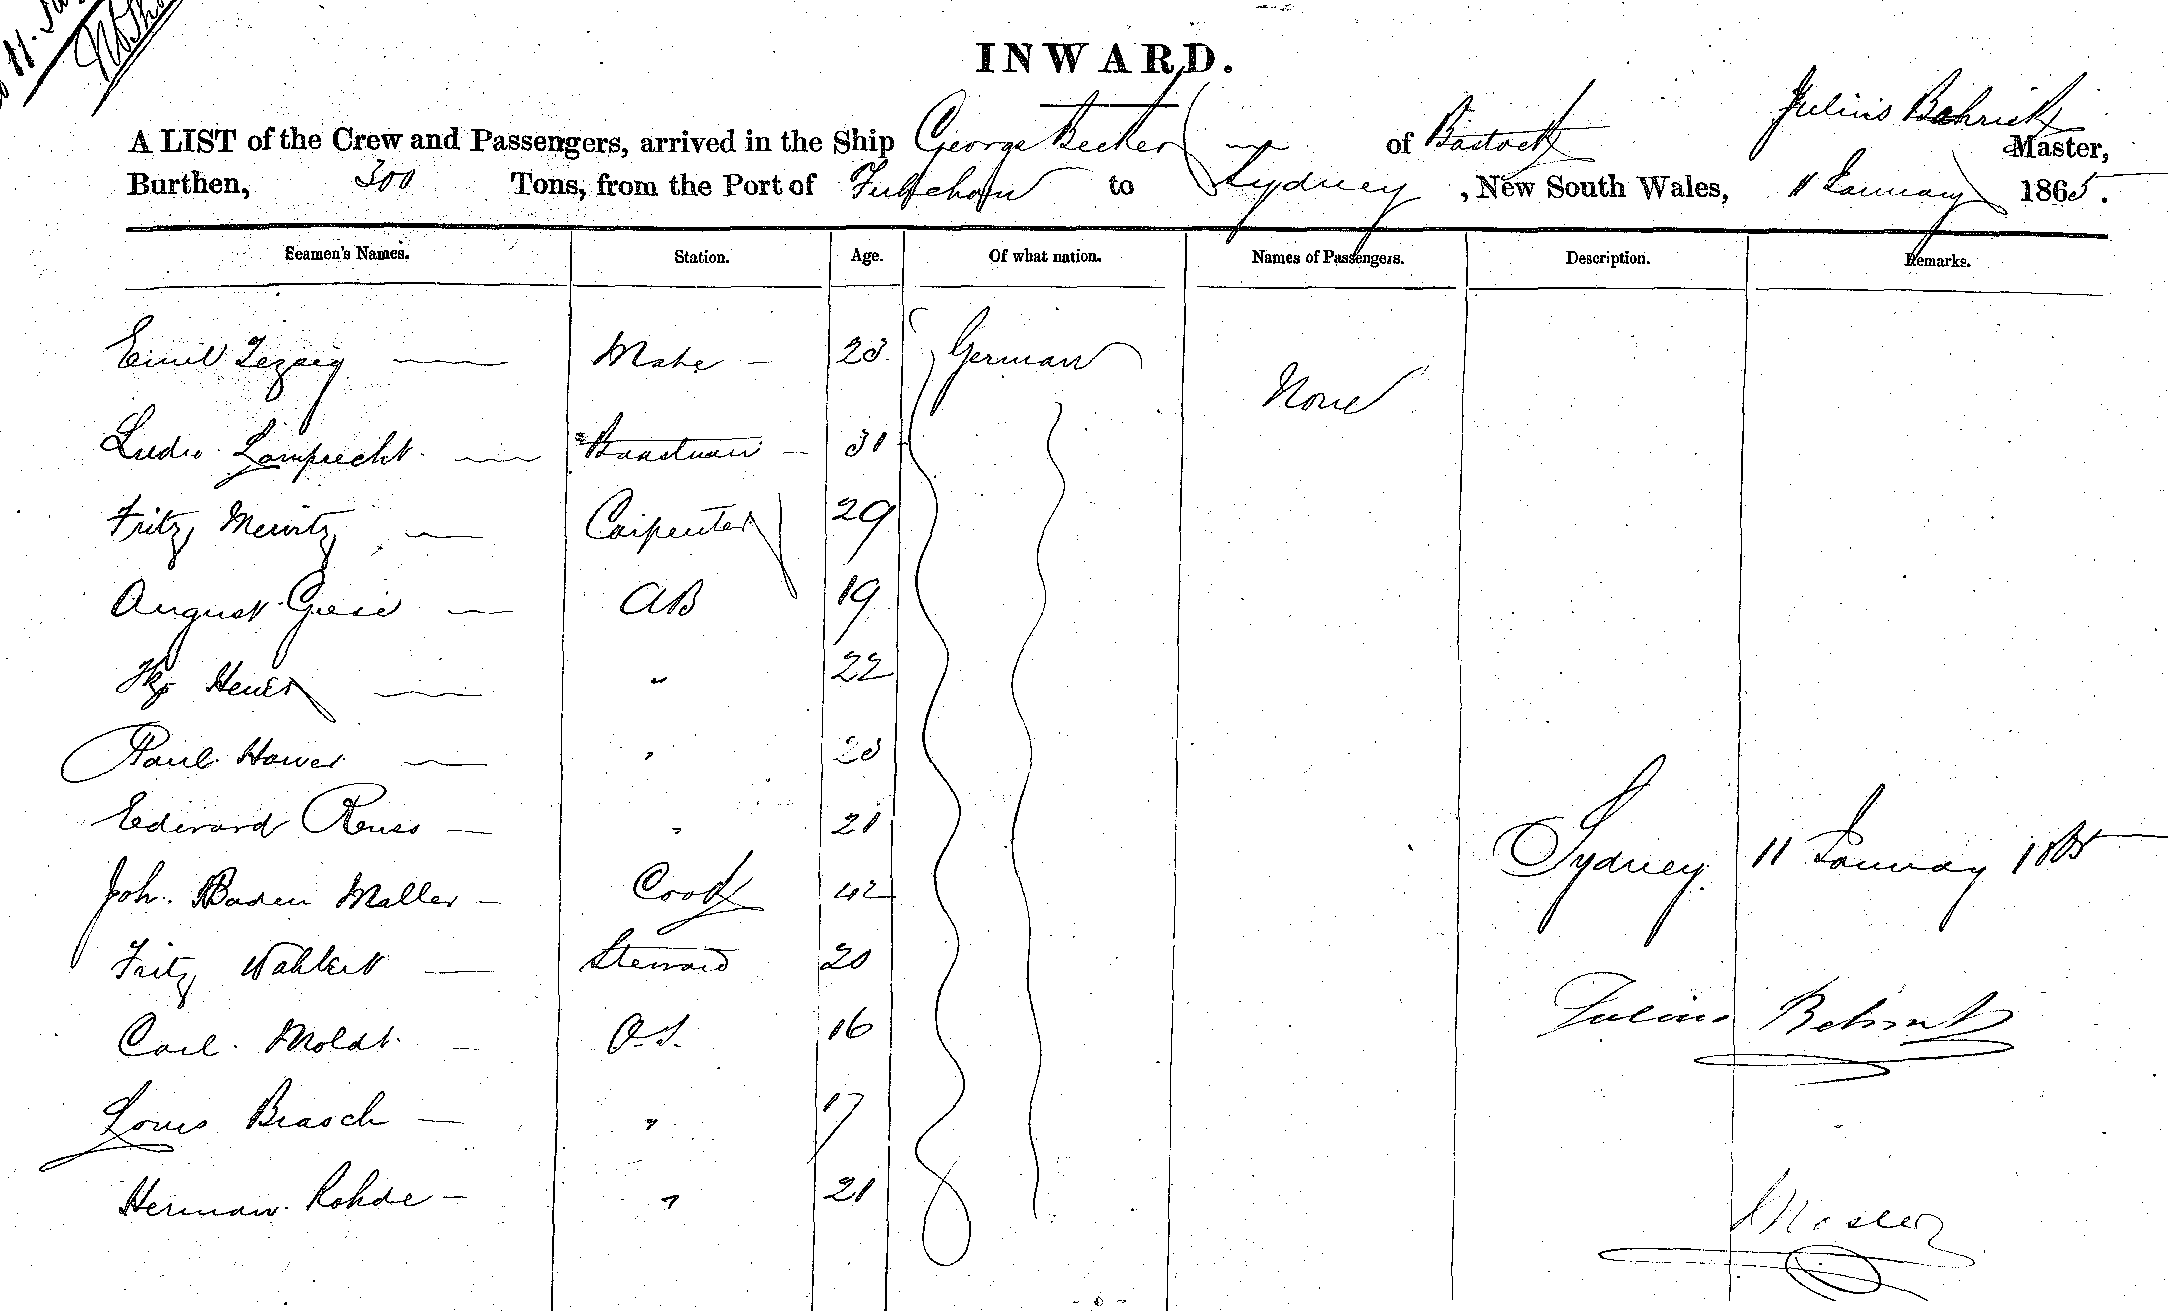 11.
INWARD.
A LIST of the Crew and Passengers, arrived in the Ship George Becker of Master,
Julius
Burthen, 300 Tons, from the Port of to Sydney, New South Wales, 11 January 1865.
Seamen's Names. Station. Age. Of what nation. Names of Passengers. Description. Remarks.
Emil Mate 23 German None
Ludw. Lamprecht 31
Fritz Carpenter 29
August Giese AB 19
" 22
Paul " 23
Edward Reuss " 21
Joh. Baden Maller Cook 42
Fritz Wahlert Steward 20
Sydney 11 January 1865
Carl Moldt O.S. 16
Julius
Louis Brasch " 17
Herman Rohde " 21